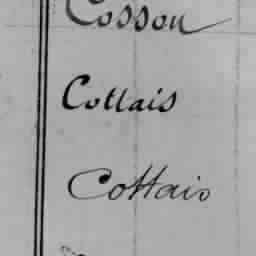 Cosson
Collais
Cottais